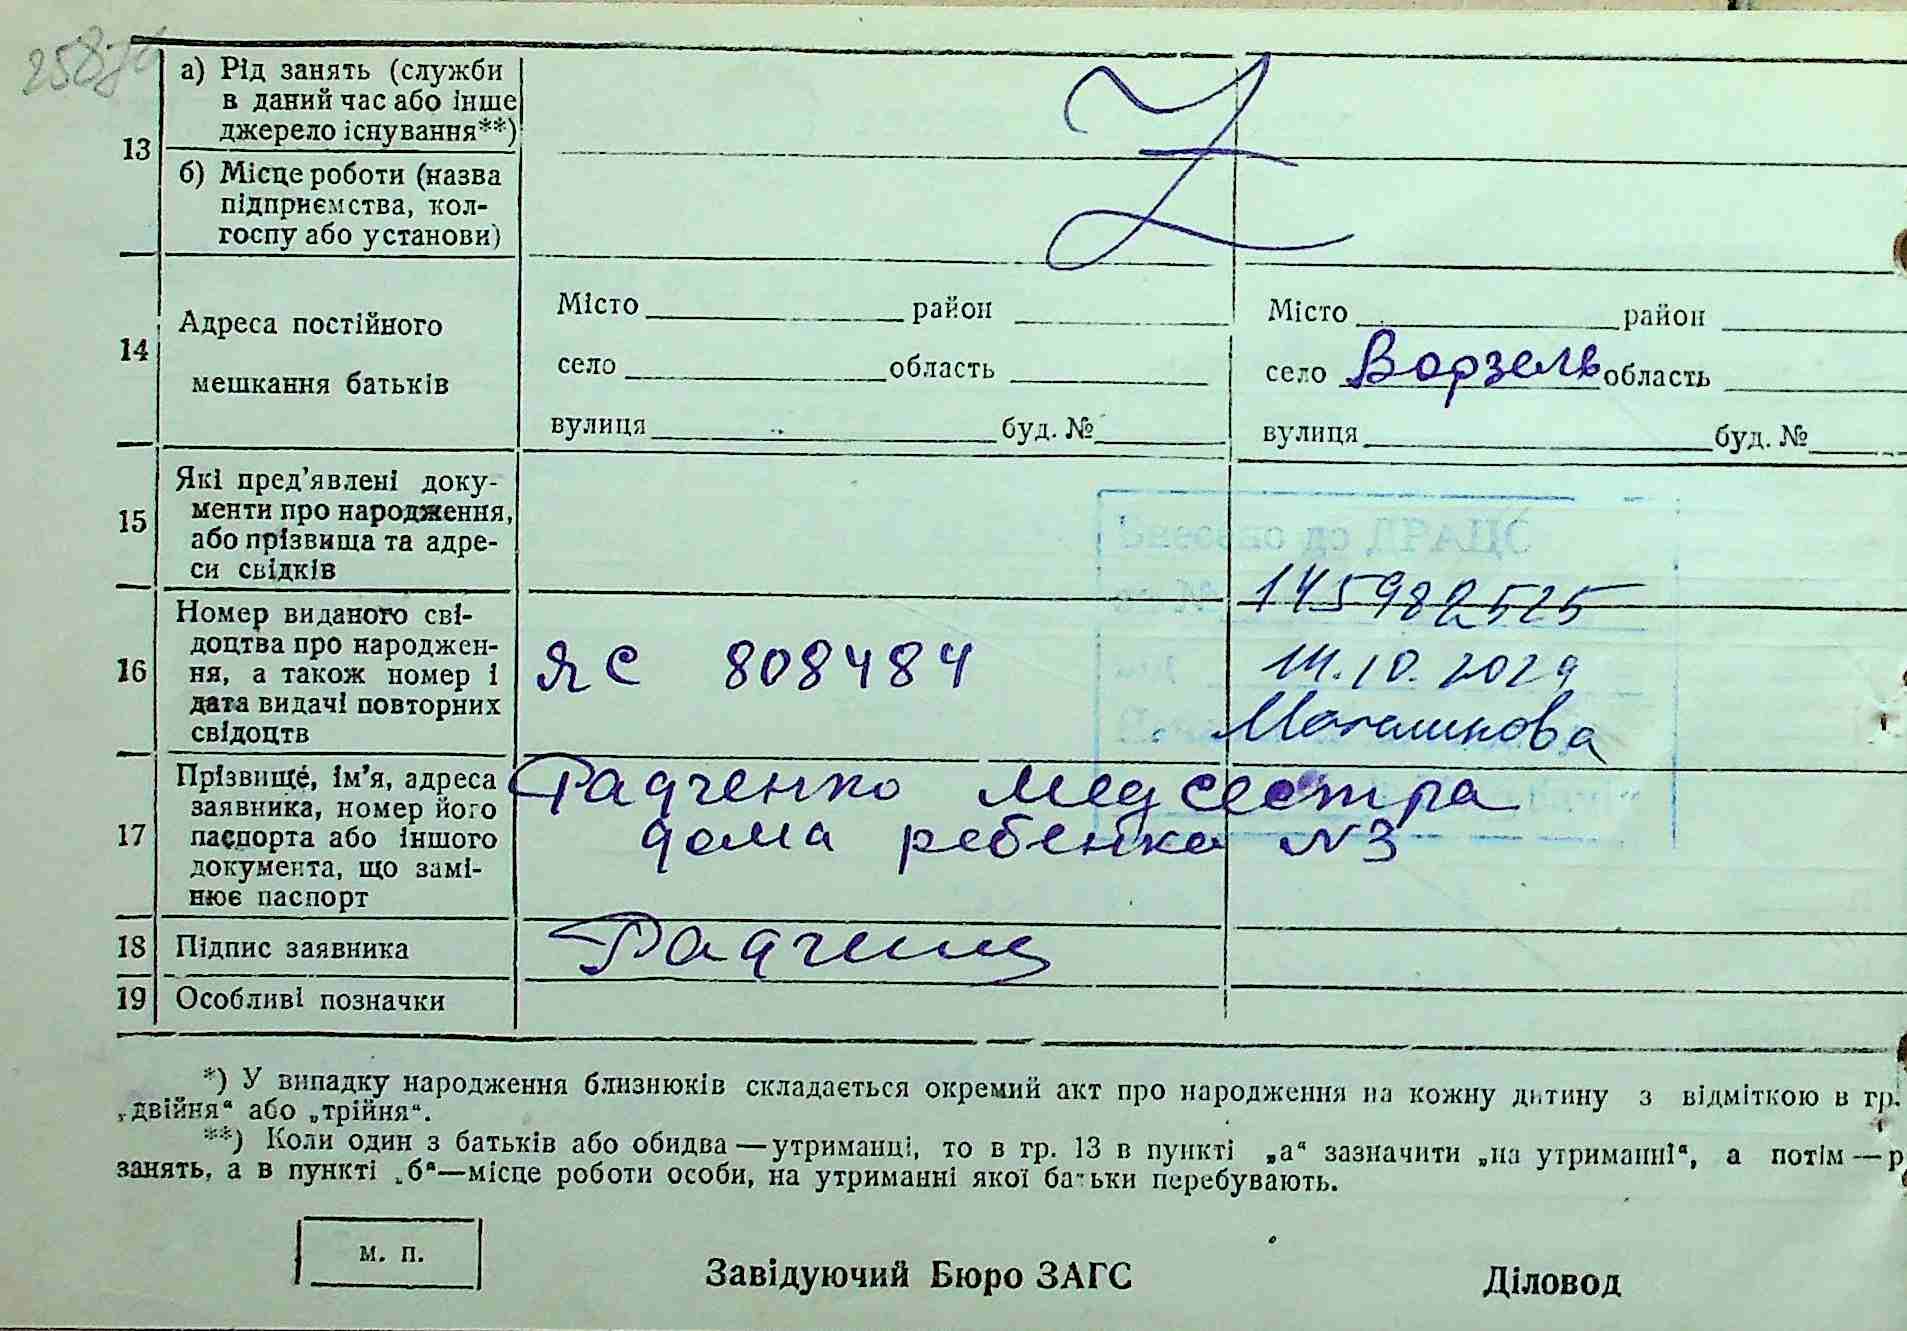 13
а) Рід занять (служби
в даний час або інше
джерело існування**)
б) Місце роботи (назва
підприємства, кол-
госпу або установи)
14
Адреса постійного
мешкання батьків
Місто район
село область
вулиця буд. №
Місто район
село Ворзель область
вулиця буд. №
15
Які пред’явлені доку-
менти про народження,
або прізвища та адре-
си свідків
Внесено до ДРАЦС
за №
145982525
16
Номер виданого сві-
доцтва про народжен-
ня, а також номер і
дата видачі повторних
свідоцтв
ЯС 808484
14.10.2024
17
Прізвище, ім’я, адреса
заявника, номер його
паспорта або іншого
документа, що замі-
нює паспорт
Радченко медсестра
дома ребенка N3
18 Підпис заявника
Радченко
19 Особливі позначки
*) У випадку народження близнюків складається окремий акт про народження на кожну дитину з відміткою в гр.
„двійня“ або „трійня“.
**) Коли один з батьків або обидва — утриманці, то в гр. 13 в пункті „а“ зазначити „на утриманні“, а потім — р
занять, а в пункті „б“—місце роботи особи, на утриманні якої батьки перебувають.
м. п.
Завідуючий Бюро ЗАГС Діловод